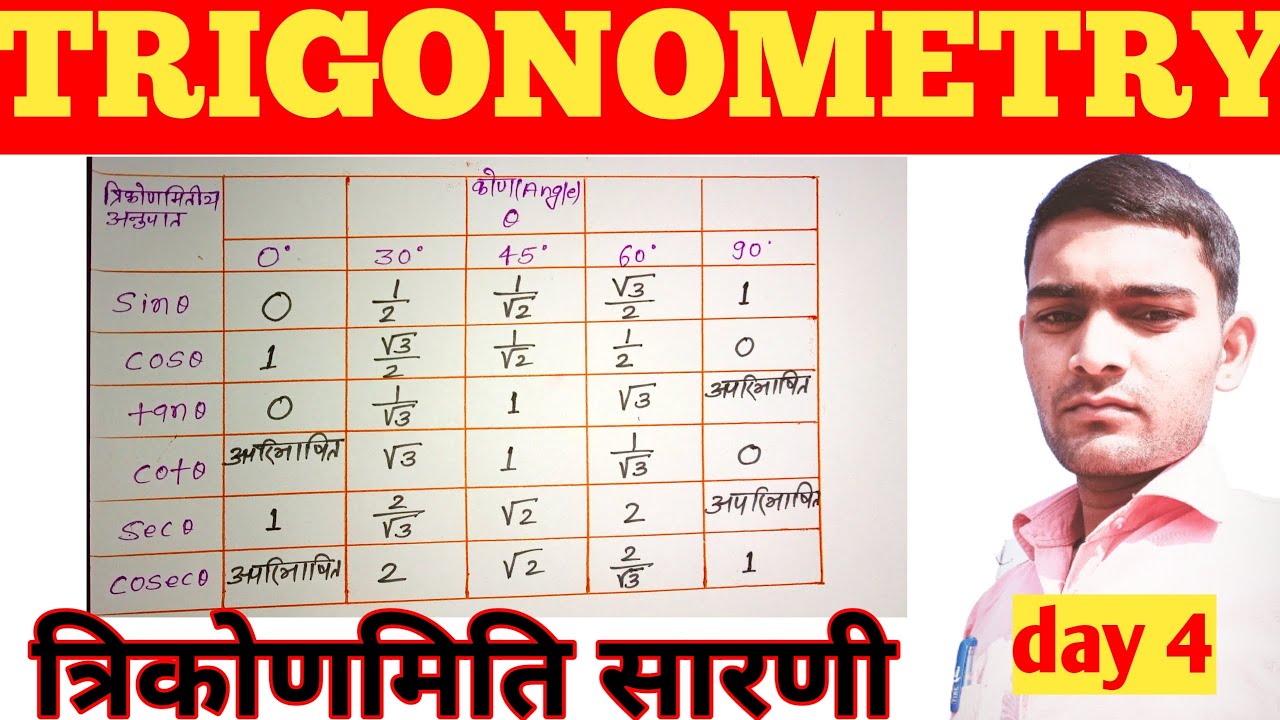 TRIGONOMETRY
त्रिकोणमितीय
अनुपात
कोण(Angle)
θ
0° 30° 45° 60° 90°
Sinθ 0 1/2 1/√2 √3/2 1
cosθ 1 √3/2 1/√2 1/2 0
tanθ 0 1/√3 1 √3 अपरिभाषित
cotθ अपरिभाषित √3 1 1/√3 0
Secθ 1 2/√3 √2 2 अपरिभाषित
cosecθ अपरिभाषित 2 √2 2/√3 1
त्रिकोणमिति सारणी
day 4